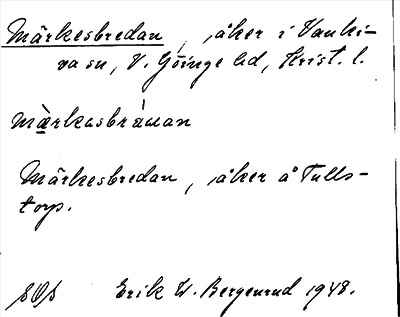 Märkesbredan, åker i Vanki-
va sn, V. Göinge hd, Krist. l.
mà̈rkasbrá̈wan
Märkesbredan, åker å Tulls-
torp.
Erik W. Bergenrud 1948.